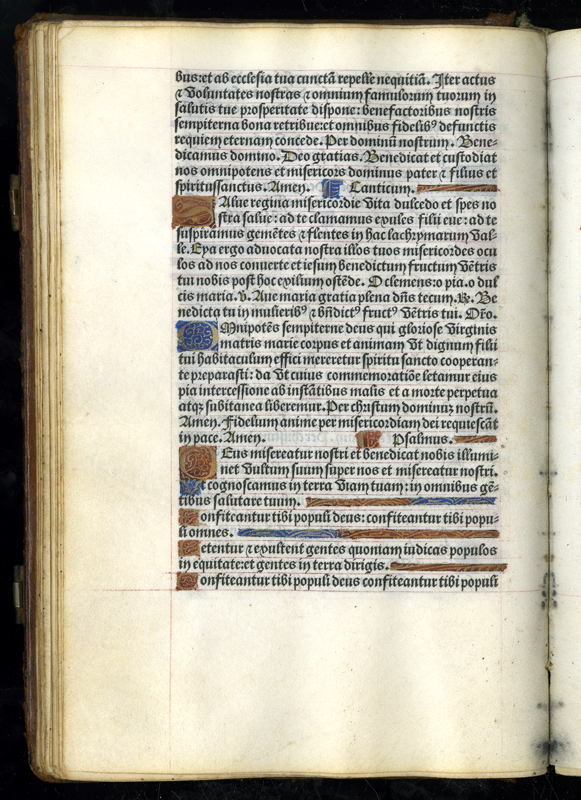 bus:et ab ecclesia tua cunctã repelle nequitiã. Iter actus
⁊ voluntates nostras ⁊ omnium famulorum tuorum in
salutis tue prosperitate dispone: benefactoribus nostris
sempiterna bona retribue:et omnibus fidelibꝰ defunctis
requiem eternam concede. Per dominũ nostrum. Bene-
dicamus domino. Deo gratias. Benedicat et custodiat
nos omnipotens et misericors dominus pater ⁊ filius et
spiritussanctus. Amen. Canticum.
SAlue regina misericordie vita dulcedo et spes no
stra salue: ad te clamamus exules filii eue: ad te
suspiramus gemẽtes ⁊ flentes in hac lachrymarum val-
le. Eya ergo aduocata nostra illos tuos misericordes ocu
los ad nos conuerte et iesum benedictum fructum vẽtris
tui nobis post hoc exilium ostẽde. O clemens:o pia.o dul
cis maria. ℣. Aue maria gratia plena dñs tecum. ℟. Be
nedicta tu in mulieribꝰ ⁊ bñdictꝰ fructꝰ vẽtris tui. Oŕo.
OMnipotẽs sempiterne deus qui gloriose virginis
matris marie corpus et animam vt dignum filii
tui habitaculum effici mereretur spiritu sancto cooperan-
te preparasti: da vt cuius commemoratiõe letamur eius
pia intercessione ab instãtibus malis et a morte perpetua
atqꝫ subitanea liberemur. Per christum dominuz nostrũ.
Amen. Fidelium anime per misericordiam dei requiescãt
in pace. Amen. Psalmus.
DEus misereatur nostri et benedicat nobis illumi-
net vultum suum super nos et misereatur nostri.
Vt cognoscamus in terra viam tuam: in omnibus gẽ-
tibus salutare tuum.
Confiteantur tibi populi deus: confiteantur tibi popu-
li omnes.
Letentur ⁊ exultent gentes quoniam iudicas populos
in equitate:et gentes in terra dirigis.
Confiteantur tibi populi deus confiteantur tibi populi